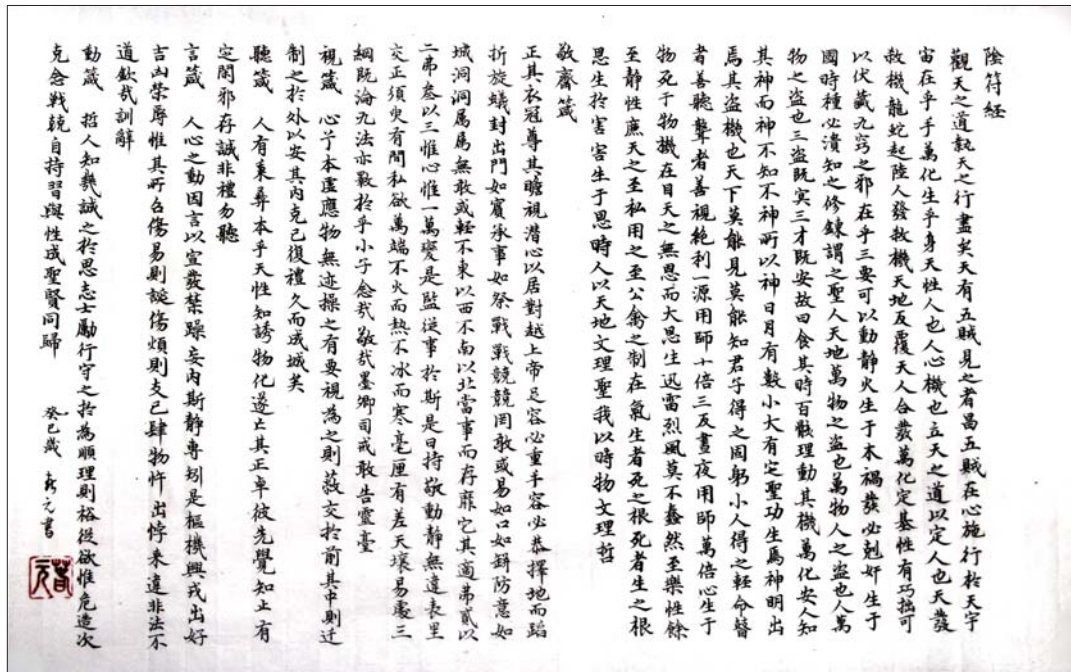 陰符經
觀天之道執天之行盡矣天有五賊見之者昌五賊在心施行於天宇
宙在乎手萬化生乎身天性人也人心機也立天之道以定人也天發
殺機龍蛇起陸人發殺機天地反覆天人合發萬化定基性有巧拙可
以伏藏九竅之邪在乎三要可以動靜火生于木禍發必剋奸生于
國時種必潰知之修鍊謂之聖人天地萬物之盜也萬物人之盜也人萬
物之盜也三盜既冥三才既安故曰食其時百骸理動其機萬化安人知
其神而神不知不神所以神日月有數小大有定聖功生焉神明出
焉其盜機也天下莫能見莫能知君子得之固躬小人得之輕命瞽
者善聽聾者善視絕利一源用師十倍三反晝夜用師萬倍心生于
物死于物機在目天之無恩而大恩生迅雷烈風莫不蠢然至樂性餘
至靜性廉天之至私用之至公禽之制在氣生者死之根死者生之根
恩生於害害生于恩時人以天地文理聖我以時物文理哲
敬齋箴
正其衣冠尊其瞻視潛心以居對越上帝足容必重手容必恭擇地而蹈
折旋蟻封出門如賓承事如祭戰戰競競罔敢或易如口如缾防意如
城洞洞属属無敢或輕不東以西不南以北當事而存靡它其適弗貳以
二弗叁以三惟心惟一萬變是監從事於斯是曰持敬動靜無違表裏
交正須臾有間私欲萬端不火而熱不冰而寒毫厘有差天壤易處三
綱既淪九法亦斁於乎小子念哉敬哉墨卿司戒敢告靈臺
視箴 心兮本虛應物無迹操之有要視為之則蔽交於前其中則迁
制之於外以安其內克己復禮久而成城矣
聽箴 人有秉彝本乎天性知誘物化遂亡其正卓彼先覺知止有
定閑邪存誠非禮勿聽
言箴 人心之動因言以宣發禁躁妄內斯靜專矧是樞機興戎出好
吉凶榮辱惟其所召傷易則誕傷煩則支己肆物忤出悖來違非法不
道欽哉訓辭
動箴 哲人知幾誠之於思志士勵行守之於為順理則裕從欲惟危造次
克念戰兢自持習與性成聖賢同歸 癸巳歲 元書